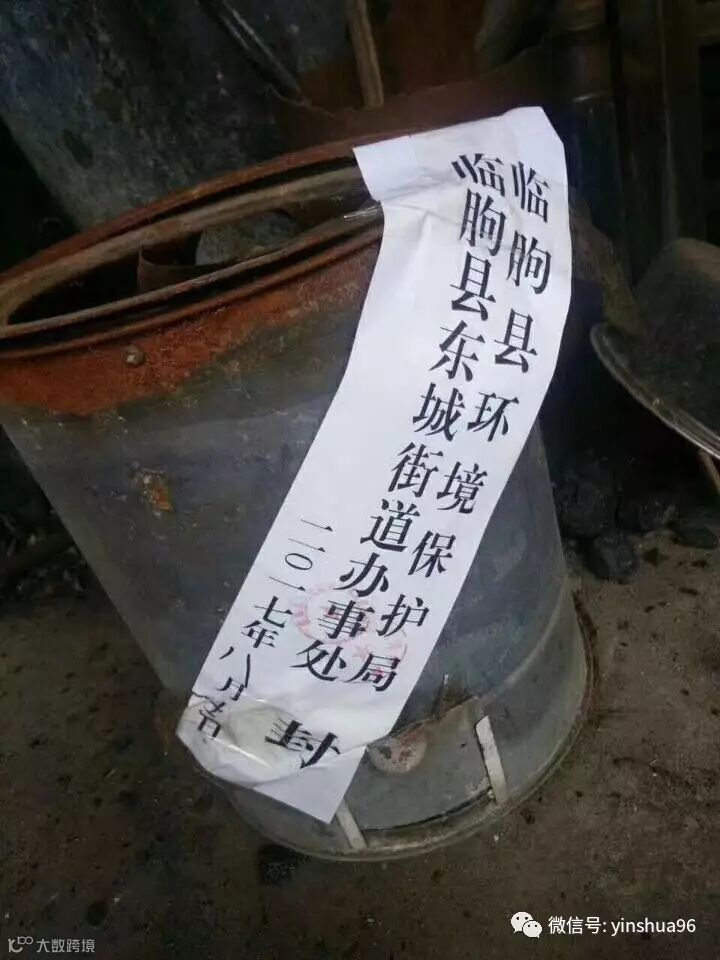 临朐县环境保护局
临朐县东城街道办事处
封
二〇一七年八月
微信号: yinshua96
大数跨境